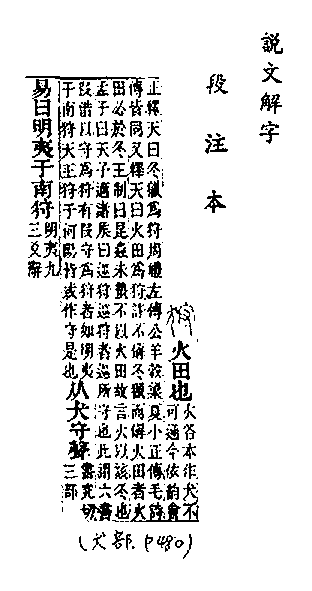 說文解字
段注本
狩 火田也 火各本作犬不
可通今依韵會
正釋天曰冬獵爲狩周禮左傳公羊穀梁夏小正傳毛詩
傳皆同又釋天曰火田爲狩許不偁冬獵而偁火田者火
田必於冬王制曰昆蟲未蟄不以火田故言火以該冬也
孟子曰天子適諸矦曰巡狩巡狩者巡所守也此謂六書
叚借以守爲狩有叚守爲狩者如明夷
于南狩天王狩于河陽皆或作守是也 从犬守聲 書究切
三部
易曰明夷于南狩 明夷九
三爻辭
(犬部. P480)